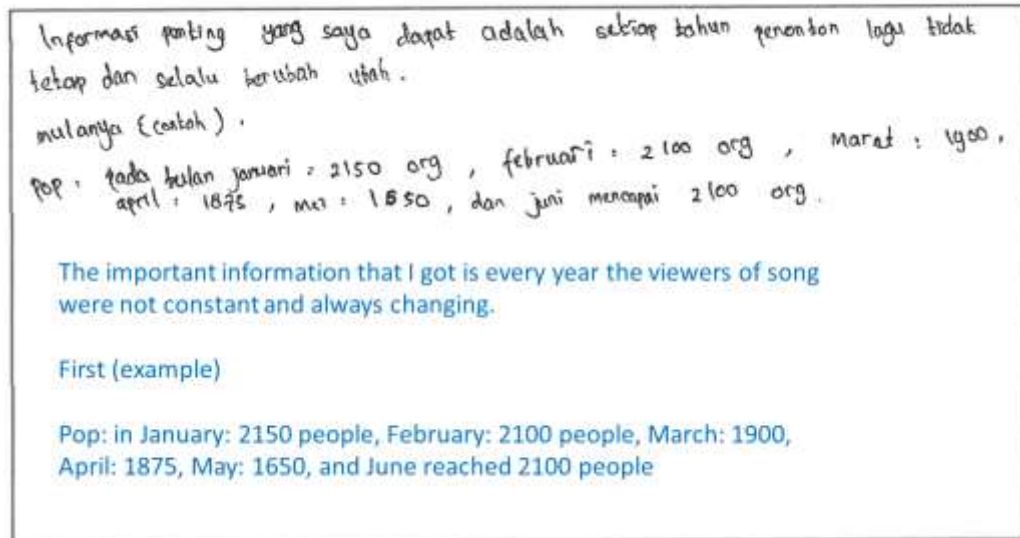 Informasi penting yang saya dapat adalah setiap tahun penonton lagu tidak
tetap dan selalu berubah ubah.
mulanya (contoh).
Pop : pada bulan januari : 2150 org , februari : 2100 org , Maret : 1900,
april : 1875 , mei : 1650 , dan juni mencapai 2100 org.
The important information that I got is every year the viewers of song
were not constant and always changing.
First (example)
Pop: in January: 2150 people, February: 2100 people, March: 1900,
April: 1875, May: 1650, and June reached 2100 people